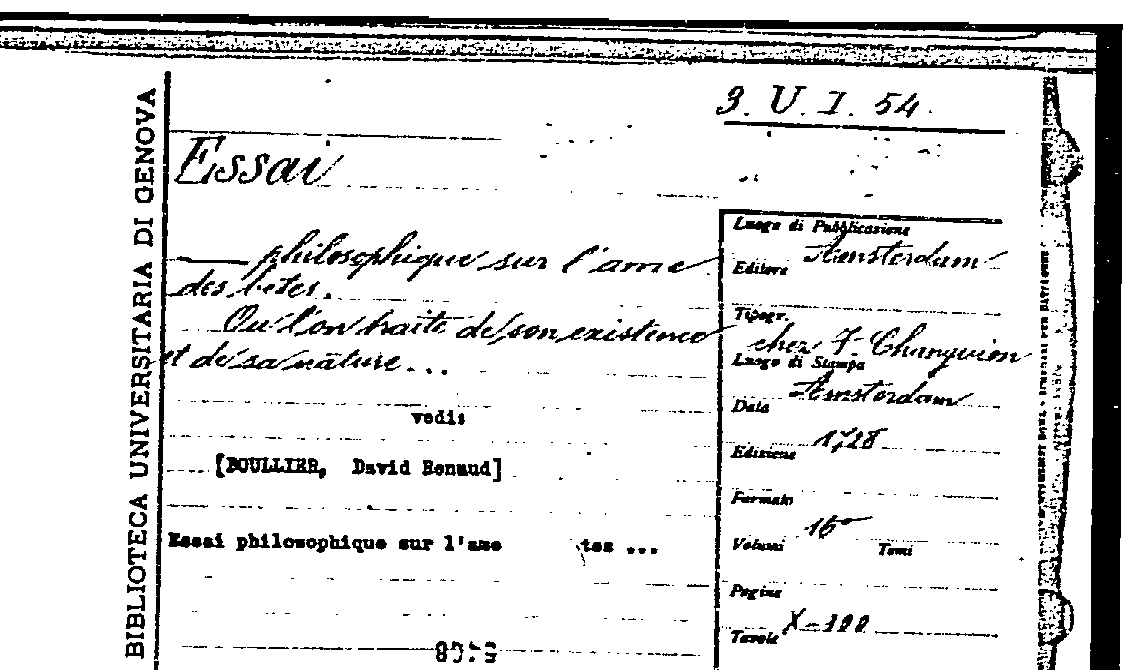 BIBLIOTECA UNIVERSITARIA DI GENOVA
3. U. I. 54.
Essai
philosophique sur l'ame
des bêtes.
Ou l'on traite de son existence
et de sa nature...
vedi:
[BOULLIER, David Renaud]
Essai philosophique sur l'ame tes ...
Luogo di Pubblicazione
Amsterdam
Editore
Tipogr.
chez F. Changuion
Luogo di Stampa
Amsterdam
Data
1728
Edizione
Formato
16°
Volumi Tomi
Pagine
Tavole